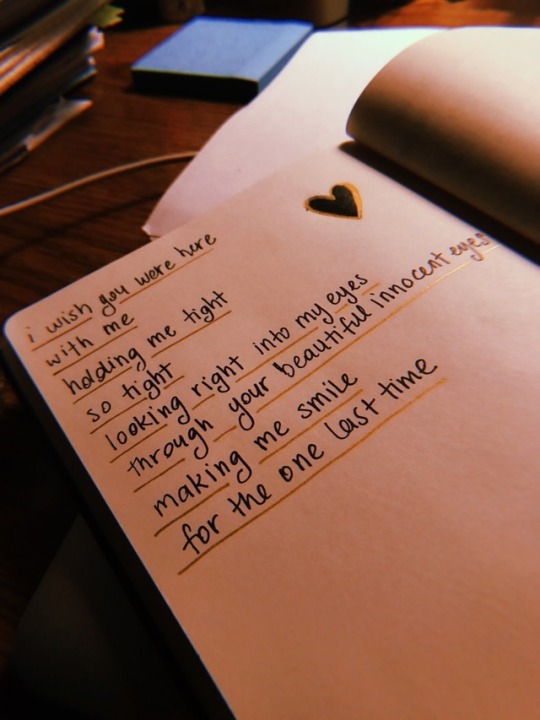 i wish you were here
with me
holding me tight
so tight
looking right into my eyes
through your beautiful innocent eyes
making me smile
for the one last time